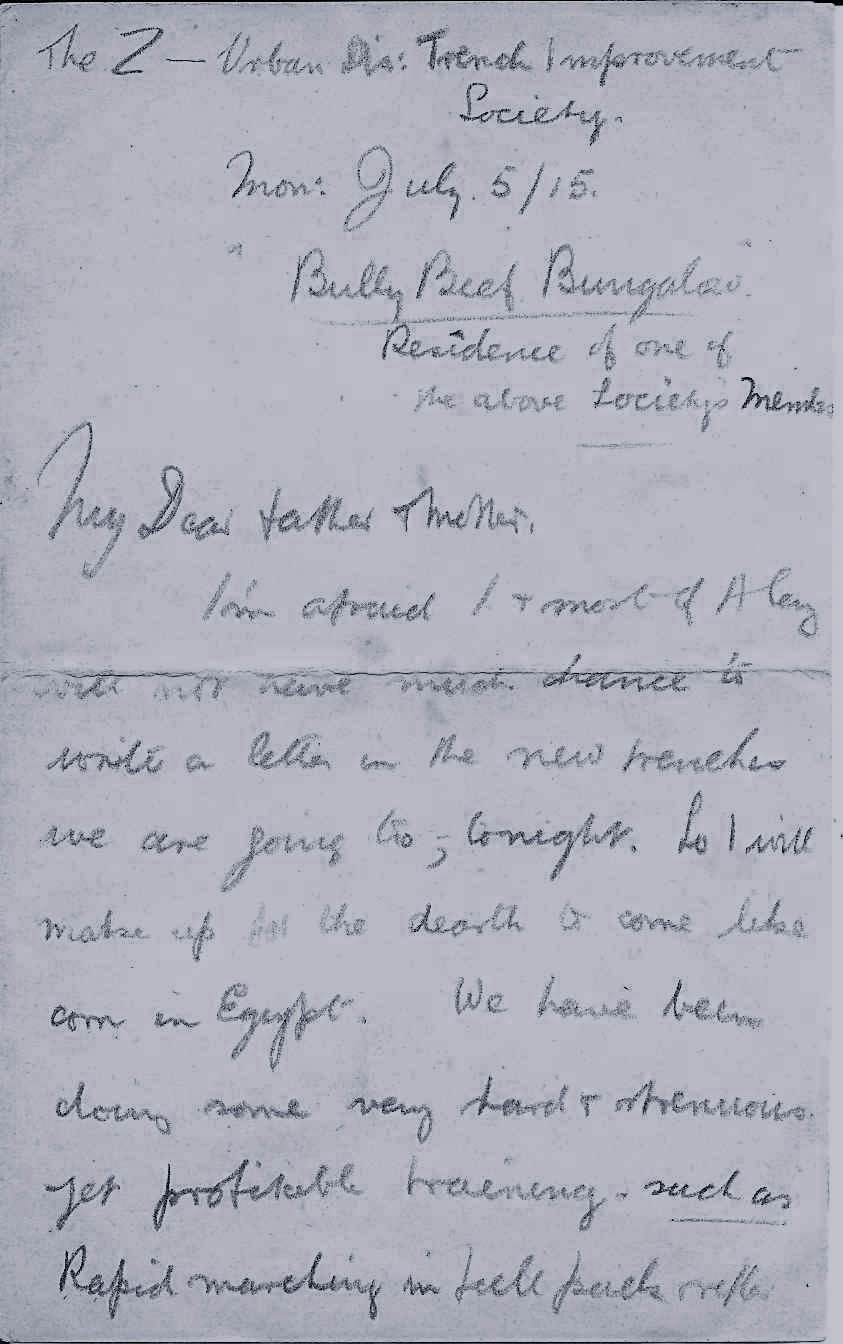 The Z — Urban Dis: Trench Improvement
Society.
Mon: July. 5/15.
"Bully Beef Bungalow".
Residence of one of
the above Society's
My Dear Father & Mother.
I'm afraid I & most of A Coy
will not have much chance to
write a letter in the new trenches
we are going to; tonight. So I will
make up for the dearth to come like
corn in Egypt. We have been
doing some very hard & strenuous
yet profitable training. such as
Rapid marching in full packs